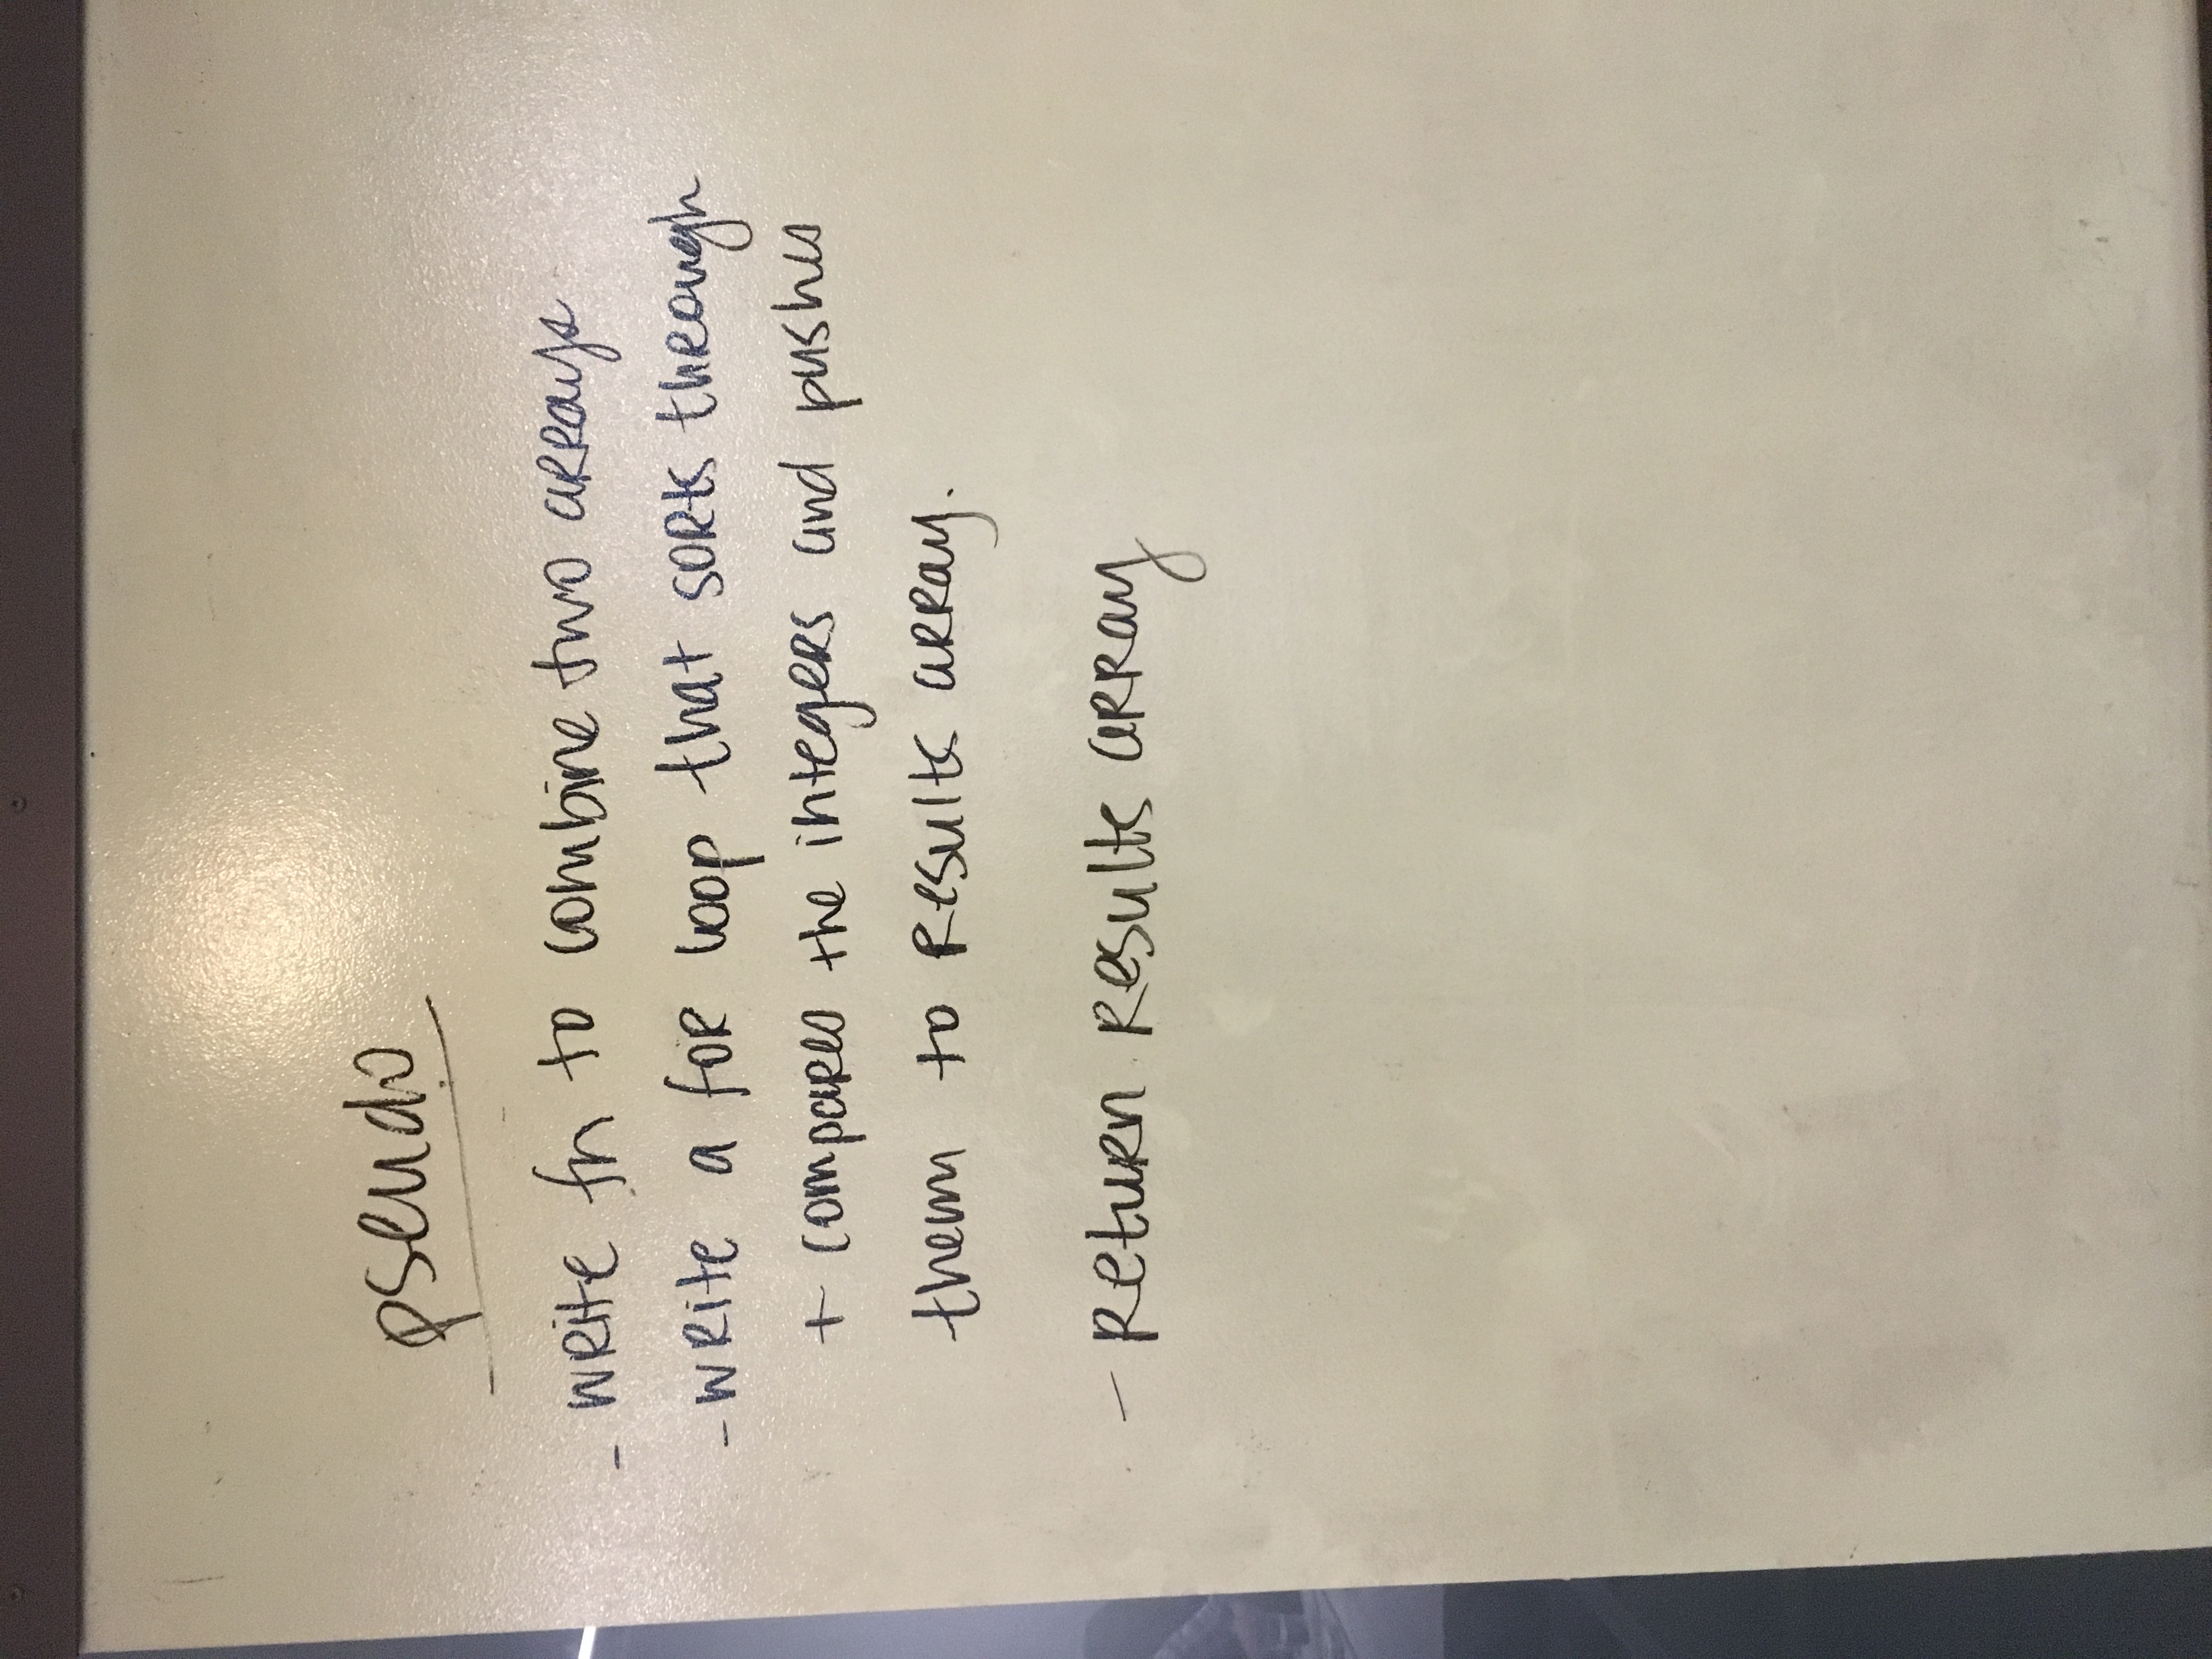 pseudo
- write fn to combine two arrays
- write a for loop that sorts through
+ compares the integers and pushes
them to results array.
- Return results array